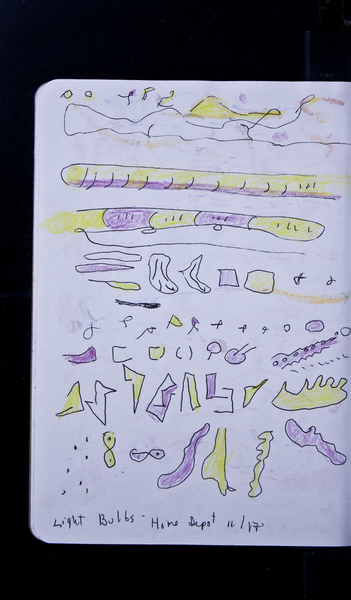 Light Bulbs - Home Depot 11/17